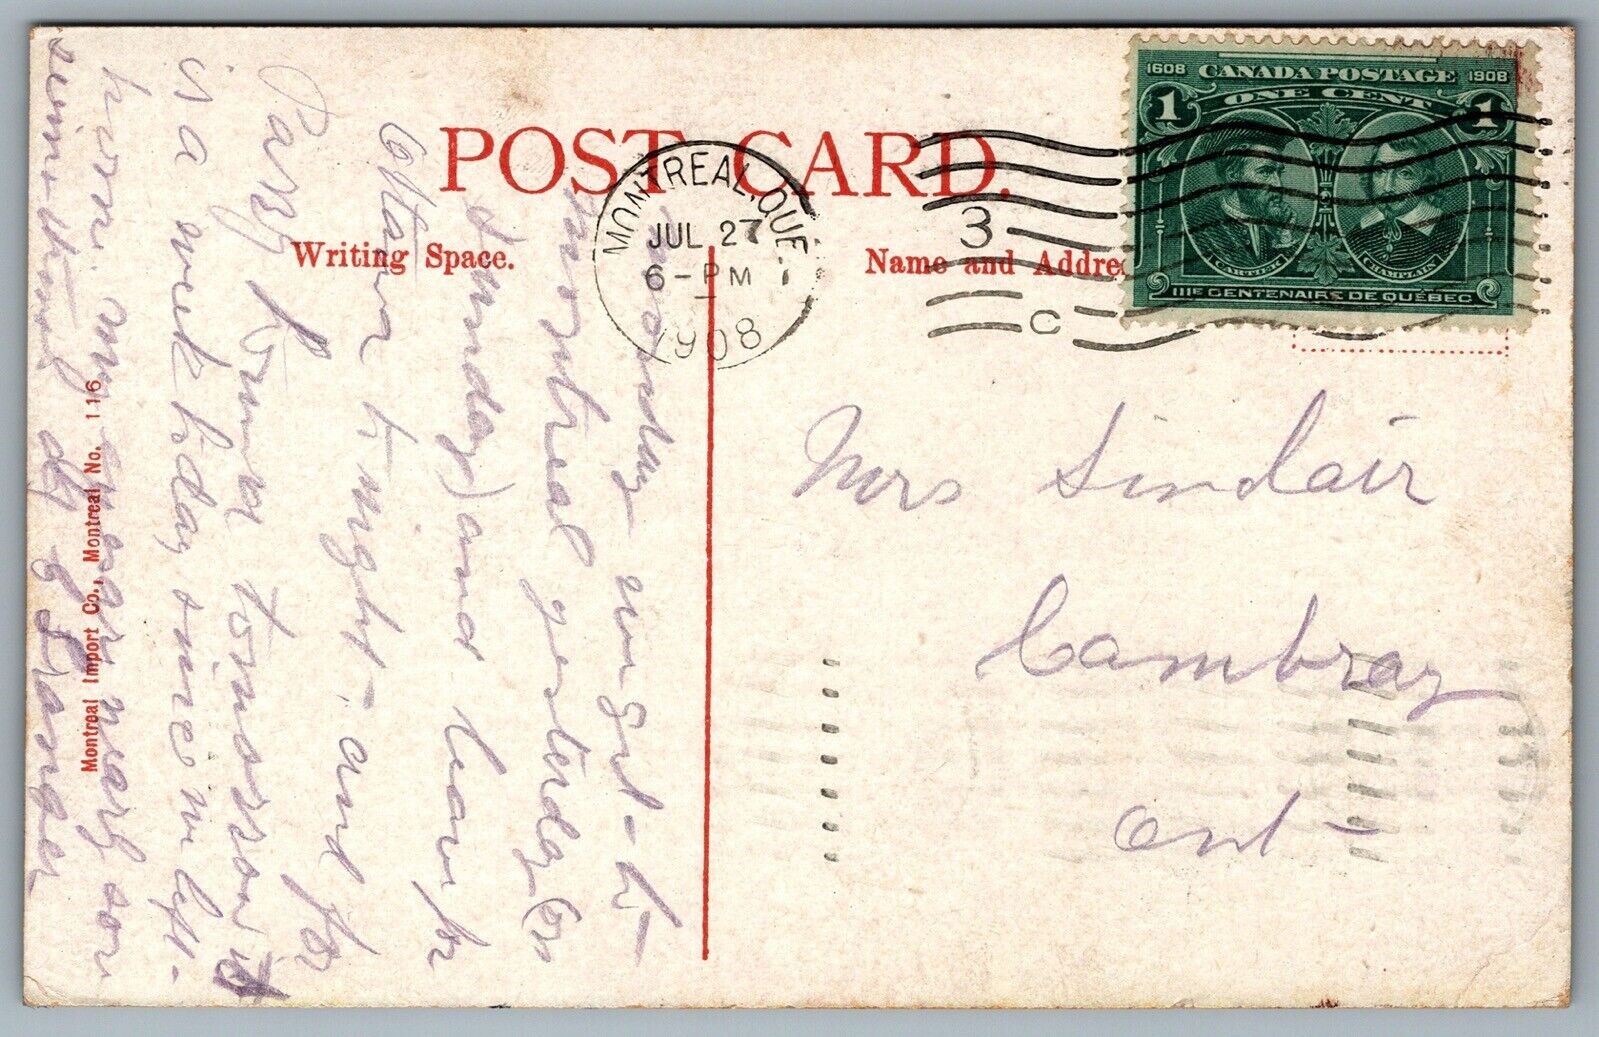 1608 CANADA POSTAGE 1908
1 ONE CENT 1
CARTIER CHAMPLAIN
IIIE CENTENAIRE DE QUÉBEC
POST CARD.
MONTREAL, QUE.
JUL 27
6-PM
1908
3
C
Writing Space.
Name and Addre
Mrs Sinclair
Cambray
Ont
Monday we got to
Montreal yesterday (
Sunday) and leave for
Ottawa to night - and for
Parry Sound tomorrow it
is a week today since we left
home. my are nearly son
Montreal Import Co., Montreal No. 116